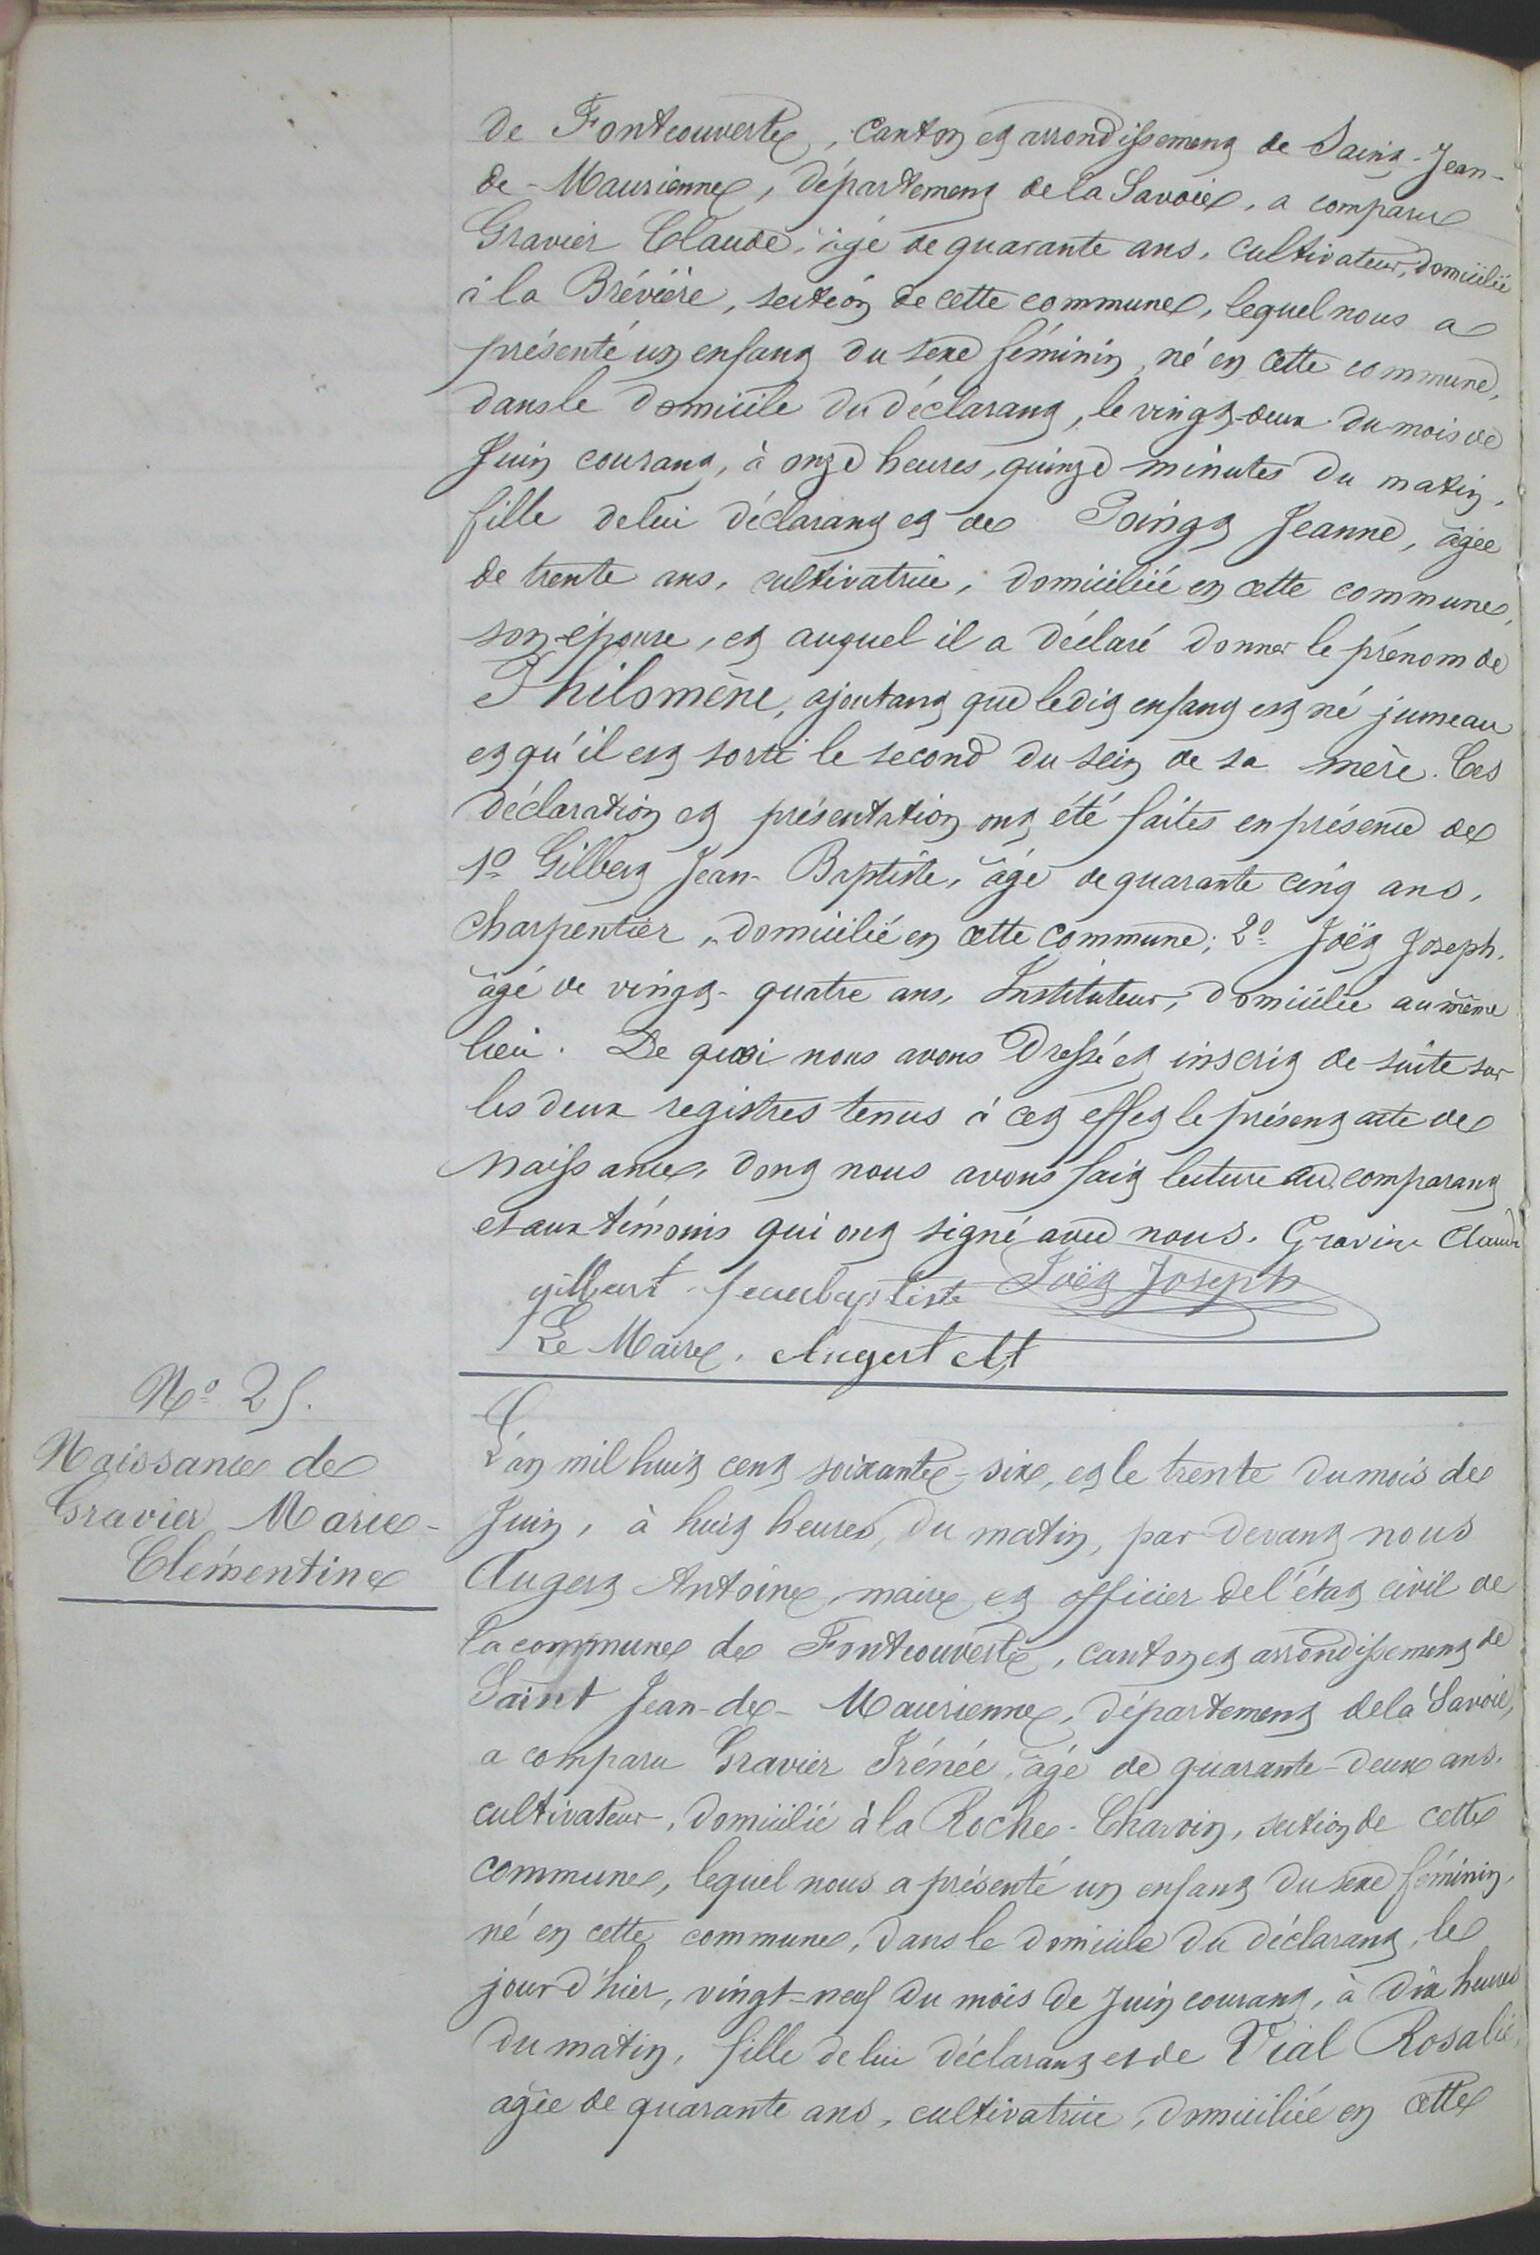 de Fontcouverte, canton et arrondissement de Saint-Jean-
de-Maurienne, département de la Savoie, a comparu
Gravier Claude, âgé de quarante ans, cultivateur, domicilié
à la Brévière, section de cette commune, lequel nous a
présenté un enfant du sexe féminin, né en cette commune,
dans le domicile du déclarant, le vingt-deux du mois de
Juin courant, à onze heures, quinze minutes du matin,
fille de lui déclarant et de Jeanne, âgée
de trente ans, cultivatrice, domiciliée en cette commune,
son épouse, et auquel il a déclaré donner le prénom de
Philomène, ajoutant que ledit enfant est né jumeau
et qu'il est sorti le second du sein de sa mère. Ces
déclaration et présentation ont été faites en présence de
1º Gilbert Jean-Baptiste, âgé de quarante cinq ans,
charpentier, domicilié en cette commune; 2º Joët Joseph,
âgé de vingt-quatre ans, Instituteur, domicilié au même
lieu. De quoi nous avons dressé et inscrit de suite sur
les deux registres tenus à cet effet le présent acte de
naissance, dont nous avons fait lecture au comparant
et aux témoins qui ont signé avec nous. Gravier Claude
gilbert jean baptiste Joët Joseph
Le Maire, Augert At
Nº 25.
Naissance de
Gravier Marie-
Clémentine
L'an mil huit cent soixante-six, et le trente du mois de
Juin, à huit heures, du matin, par devant nous
Augert Antoine, maire et officier de l'état civil de
la commune de Fontcouverte, canton et arrondissement de
Saint Jean-de-Maurienne, département de la Savoie,
a comparu Gravier Irénée, âgé de quarante-deux ans,
cultivateur, domicilié à la Roche-Charvin, section de cette
commune, lequel nous a présenté un enfant du sexe féminin,
né en cette commune, dans le domicile du déclarant, le
jour d'hier, vingt-neuf du mois de Juin courant, à dix heures
du matin, fille de lui déclarant et de Vial Rosalie,
âgée de quarante ans, cultivatrice, domiciliée en cette